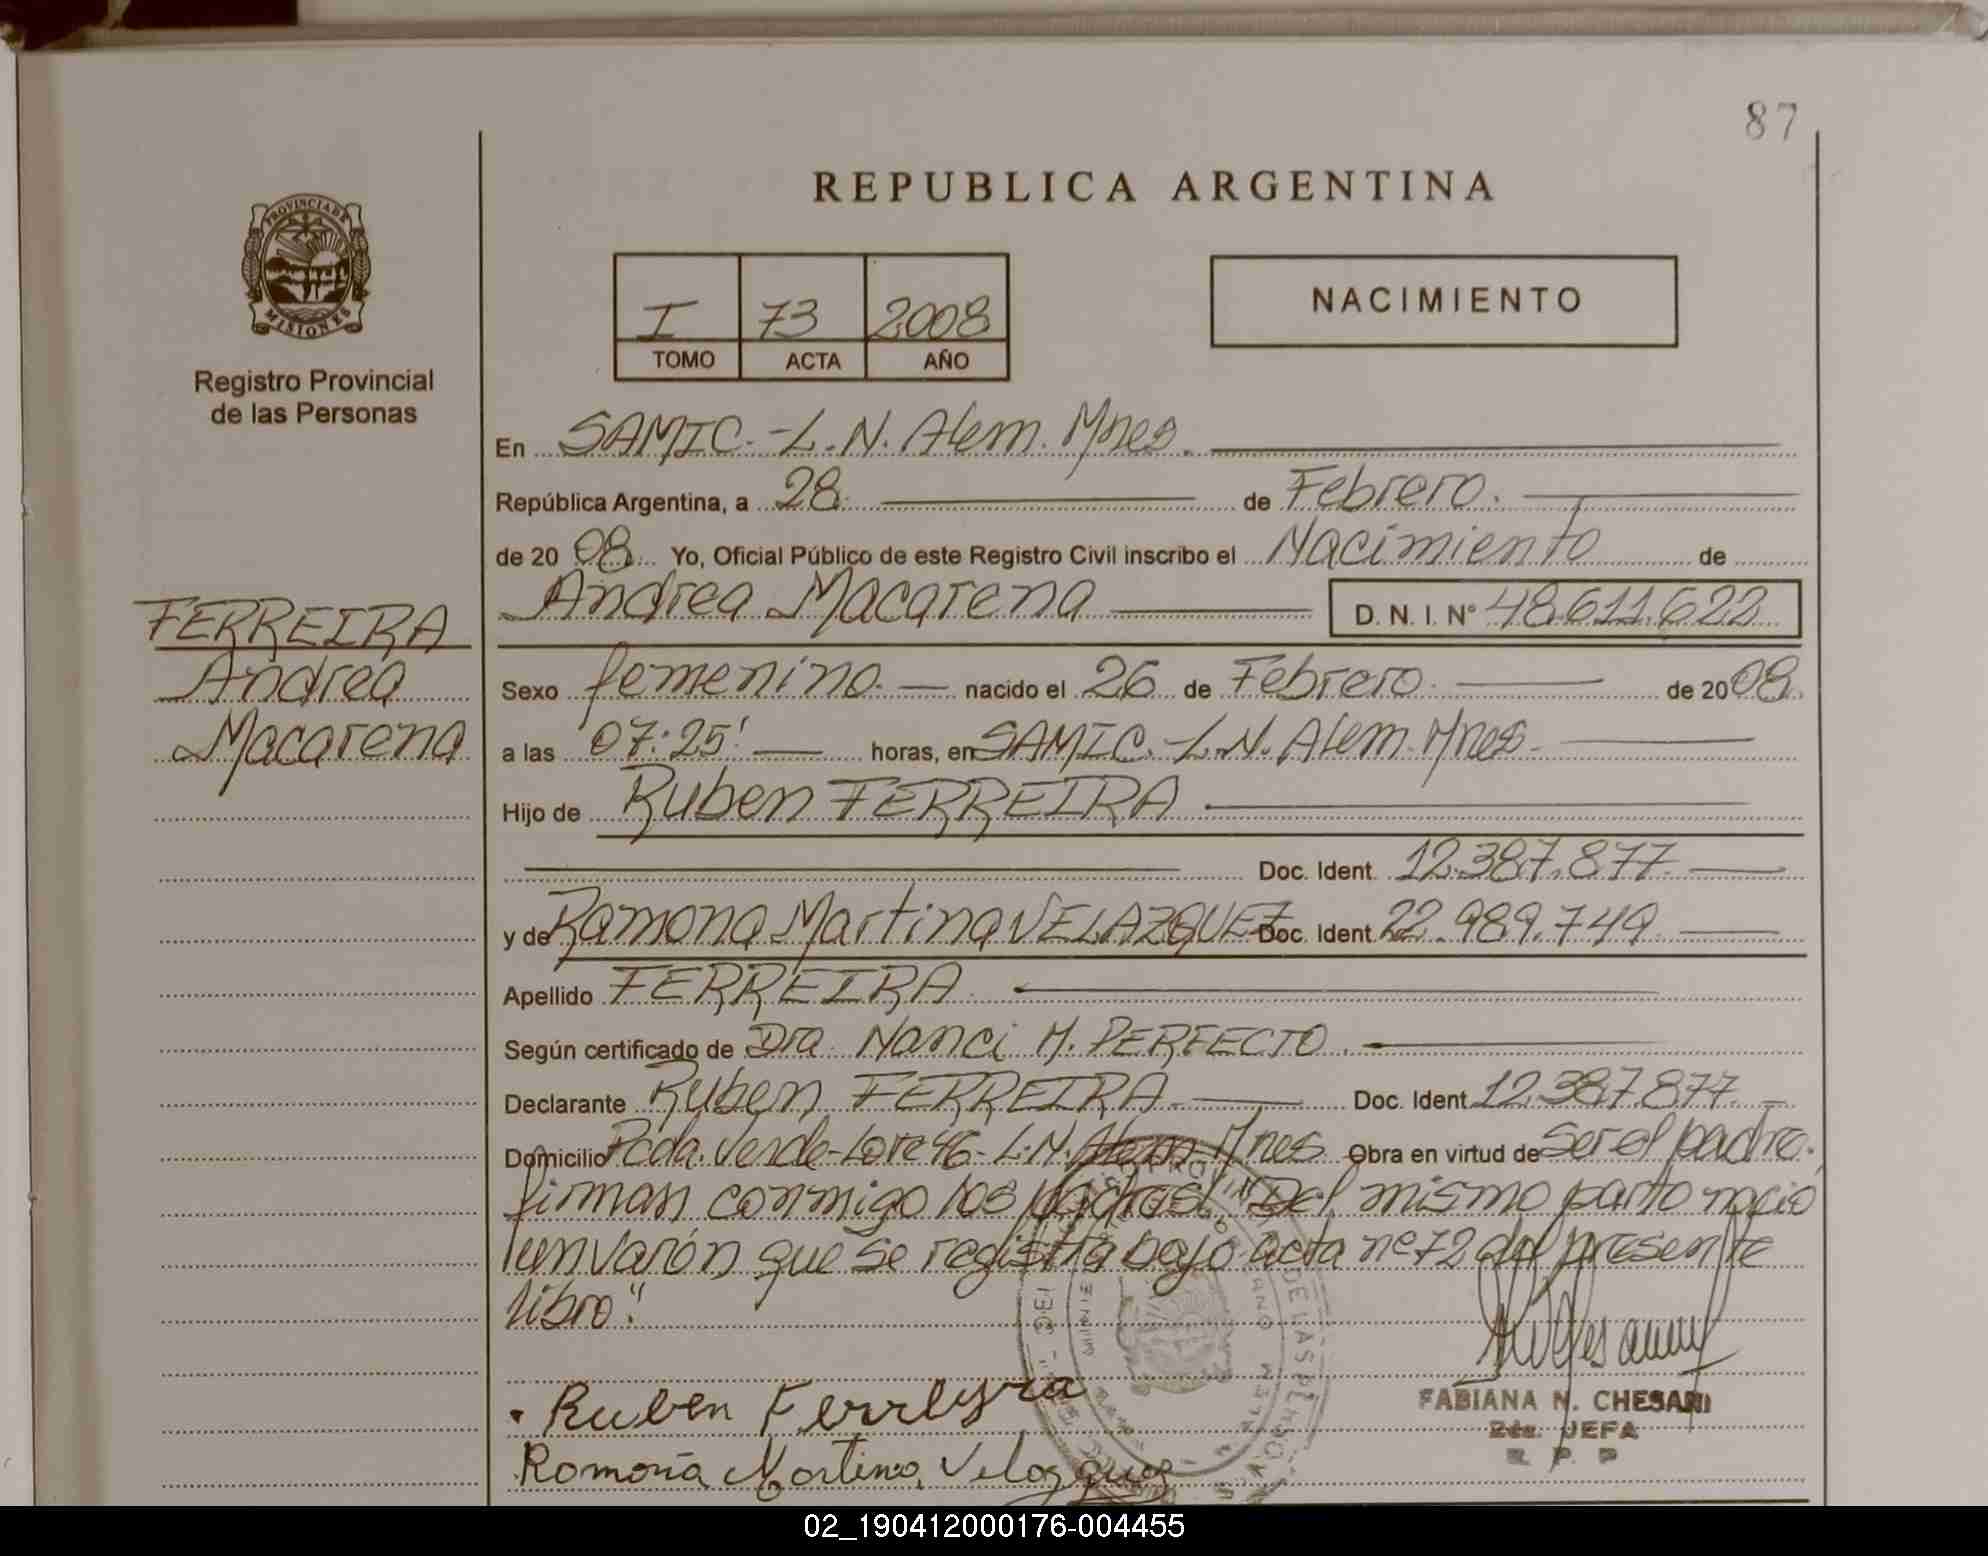 87
REPUBLICA ARGENTINA
PROVINCIA DE
MISIONES
Registro Provincial
de las Personas
I 73 2008
TOMO ACTA AÑO
NACIMIENTO
En SAMIC.-L.N. Alem. Mnes.
República Argentina, a 28. de Febrero.
de 20 08. Yo, Oficial Público de este Registro Civil inscribo el Nacimiento de
Andrea Macarena D. N. I. Nº 48.611.622
FERREIRA
Andrea
Macarena
Sexo femenino. nacido el 26 de Febrero. de 20 08.
a las 07:25' horas, en SAMIC.-L.N. Alem. Mnes.
Hijo de Ruben FERREIRA
Doc. Ident. 12.387.877.
y de Ramona Martina VELAZQUEZ Doc. Ident. 22.989.749.
Apellido FERREIRA.
Según certificado de Dra. Nanci M. PERFECTO.
Declarante Ruben FERREIRA. Doc. Ident. 12.387.877.
Domicilio Pcda. Verde-Lote 46- L.N. Alem- Mnes. Obra en virtud de ser el padre.
firman conmigo los padres. "Del mismo parto nacio
un varón que se registra bajo acta nº 72 del presente
libro."
Ruben Ferreyra
Romona Martina Velazquez
FABIANA N. CHESANI
2da. JEFA
R. P. P
02_190412000176-004455